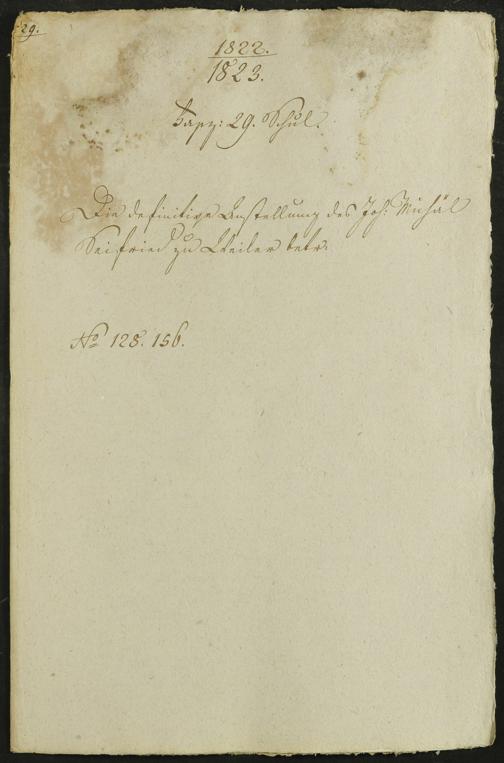 29.
1822.
1823.
Fasz: 29. Schul.
Die definitive Anstellung des Joh: Michäl
Seifried zu Weiler betr.
No 128. 156.